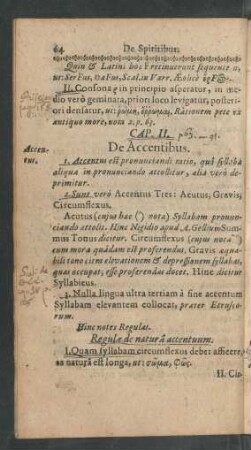 64 De Spiritibus.
Quin & Latini hoc Precinuerunt sequente u,
ut: Servus, DaFus, Scal. in Varr. Æolicè
II. Consona ρ in principio asperatur, in me-
dio verò geminata, priori loco levigatur, posteri-
ori densatur, ut: Rationem pete ex
antiquo more, vom 2. p. 63.
CAP. II.
Accen-
tus.
De Accentibus.
1. Accentus est pronunciandi ratio, quâ syllaba
aliqua in pronunciando attollitur, alia verò de-
primitur.
2. Sunt verò Accentus Tres: Acutus, Gravis,
Circumflexus.
Acutus (cujus hac nota) Syllabam pronun-
ciando attolit. Hinc Nigidio apud A. Gellium Sum-
mus Tonus dicitur. Circumflexus (cujus nota)
cum mora quadam est proferendus. Gravis aqua-
bili tono citra elevationem & depressionem syllabas,
quas occupat, esse proferendas docet. Hinc dicitur
Syllabicus.
3. Nulla lingua ultra tertiam à fine accentum
Syllabam elevantem collocat, præter Etrusco-
rum.
Hinc notes Regulas.
Regulæ de naturâ accentuum.
I. Quam syllabam circumflexus debet afficere,
ea naturâ est longa, ut: σῶμα, φῶς.
II. Cir-